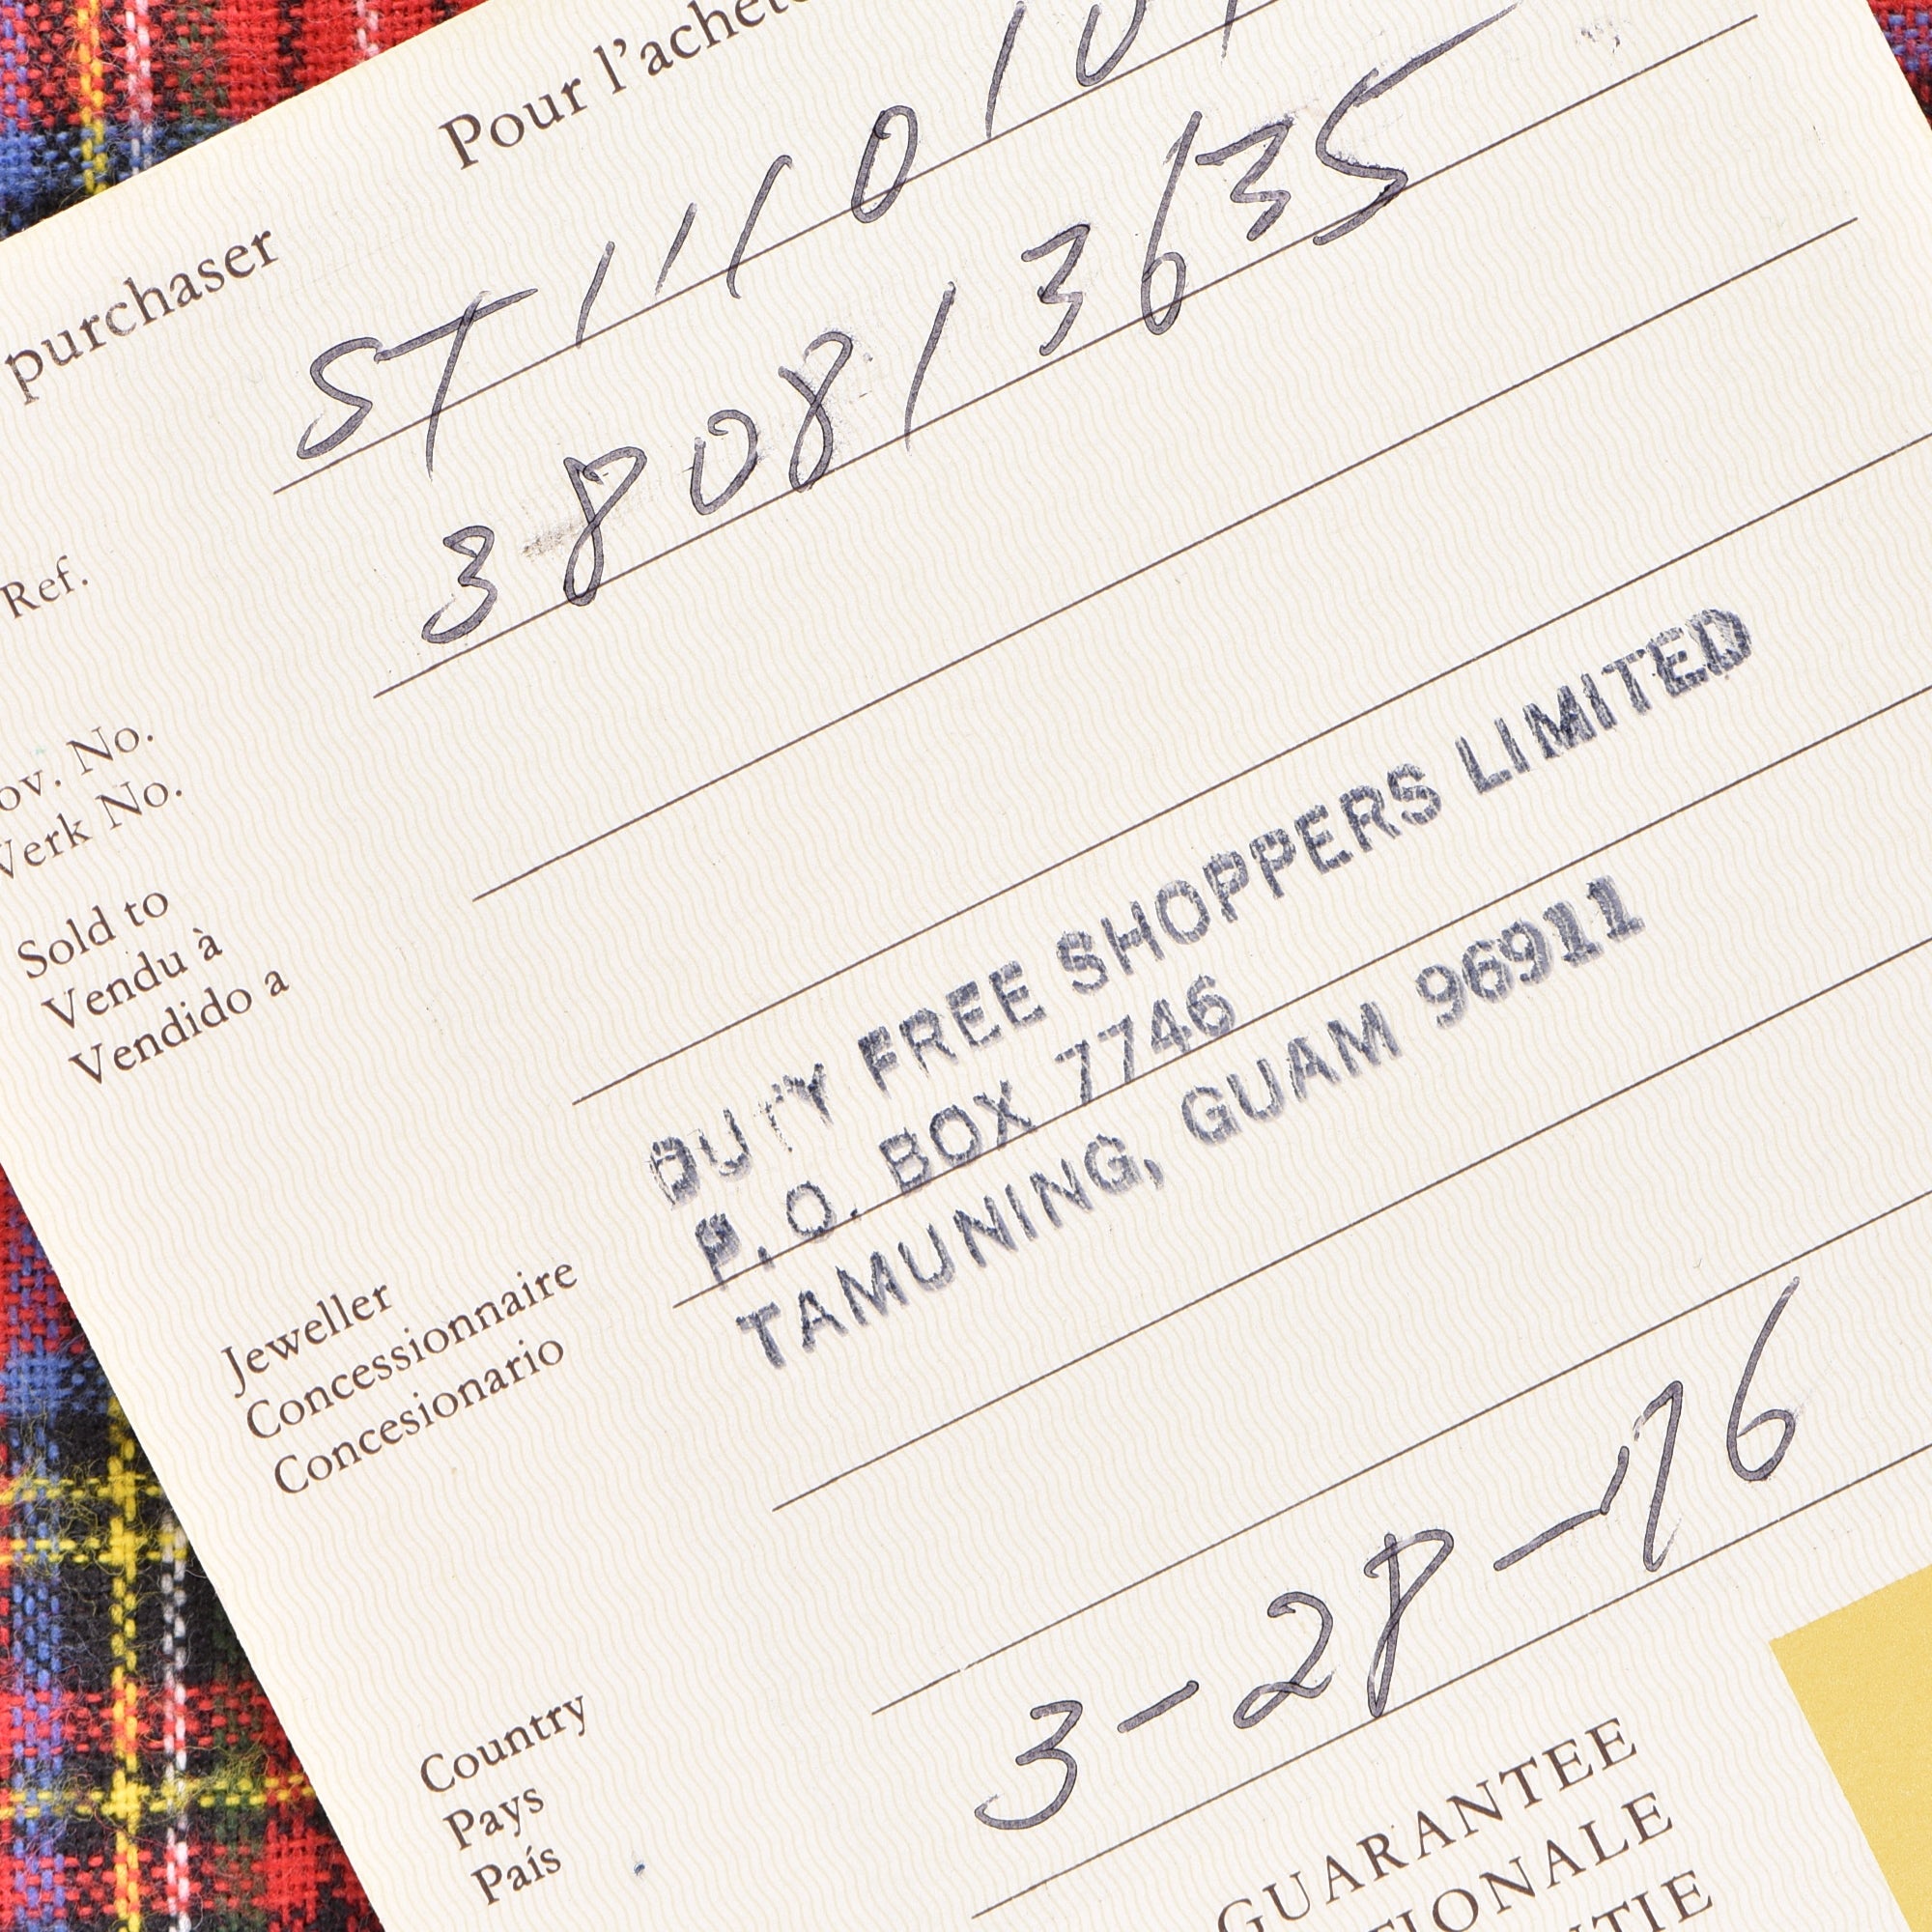 Pour l'achete
purchaser
Ref. ST 111 0 101
ov. No. 380813635
Verk No.
Sold to
Vendu à
Vendido a
DUTY FREE SHOPPERS LIMITED
P.O. BOX 7746
TAMUNING, GUAM 96911
Jeweller
Concessionnaire
Concesionario
3-28-76
Country
Pays
País
GUARANTEE
TIONALE
NTIE